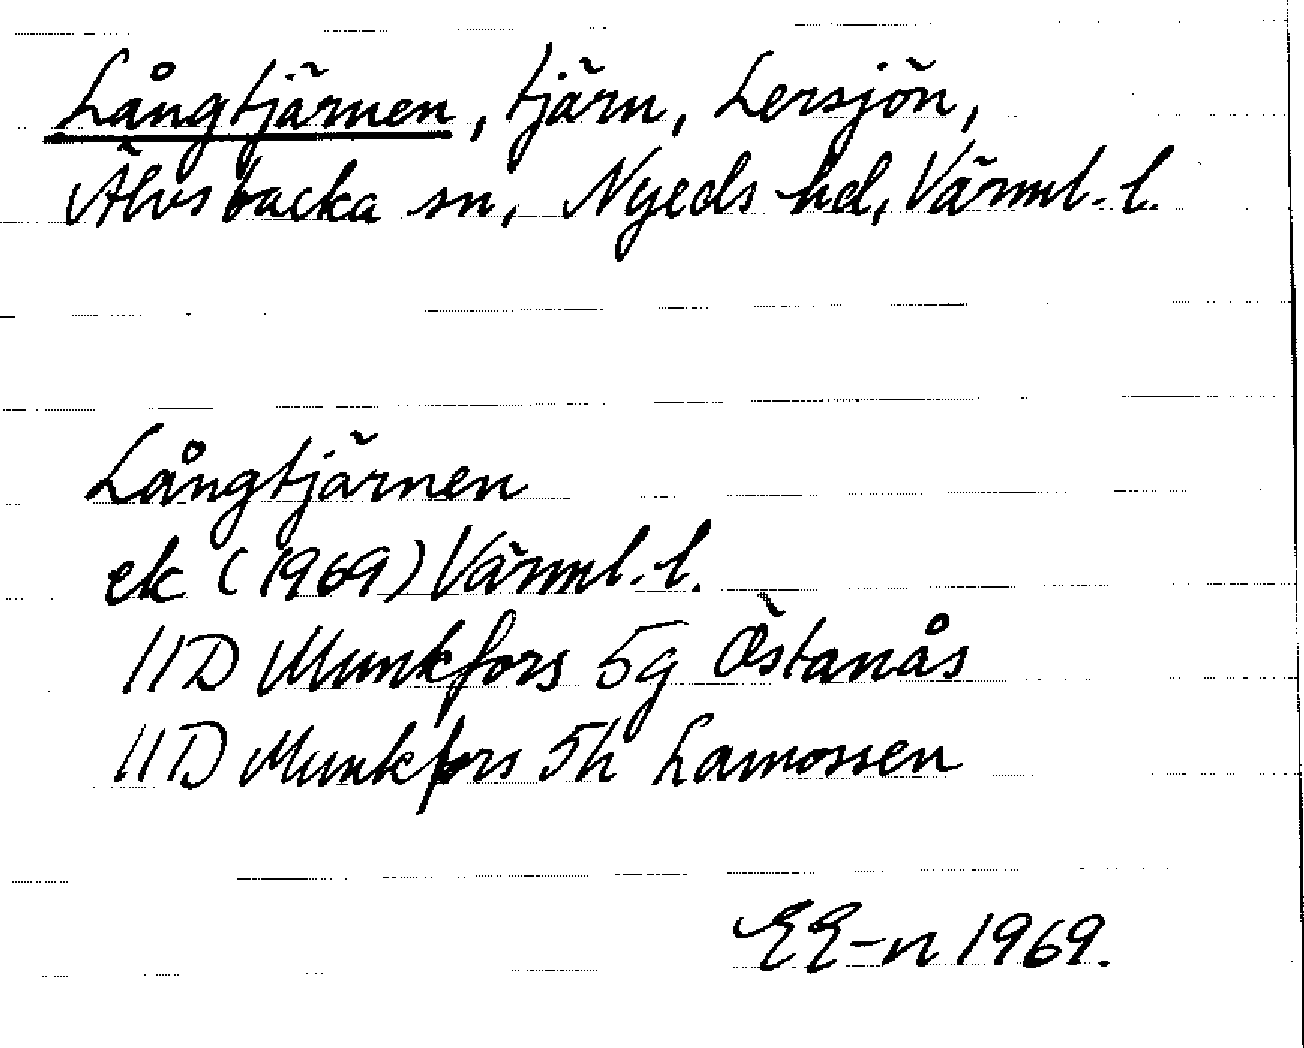 Långtjärnen, tjärn, Lersjön,
Älvsbacka sn, Nyeds hd, Värml. l.
Långtjärnen
ek (1969) Värml. l.
11D Munkfors 5g Östanås
11D Munkfors 5h Lamossen
EE-n 1969.